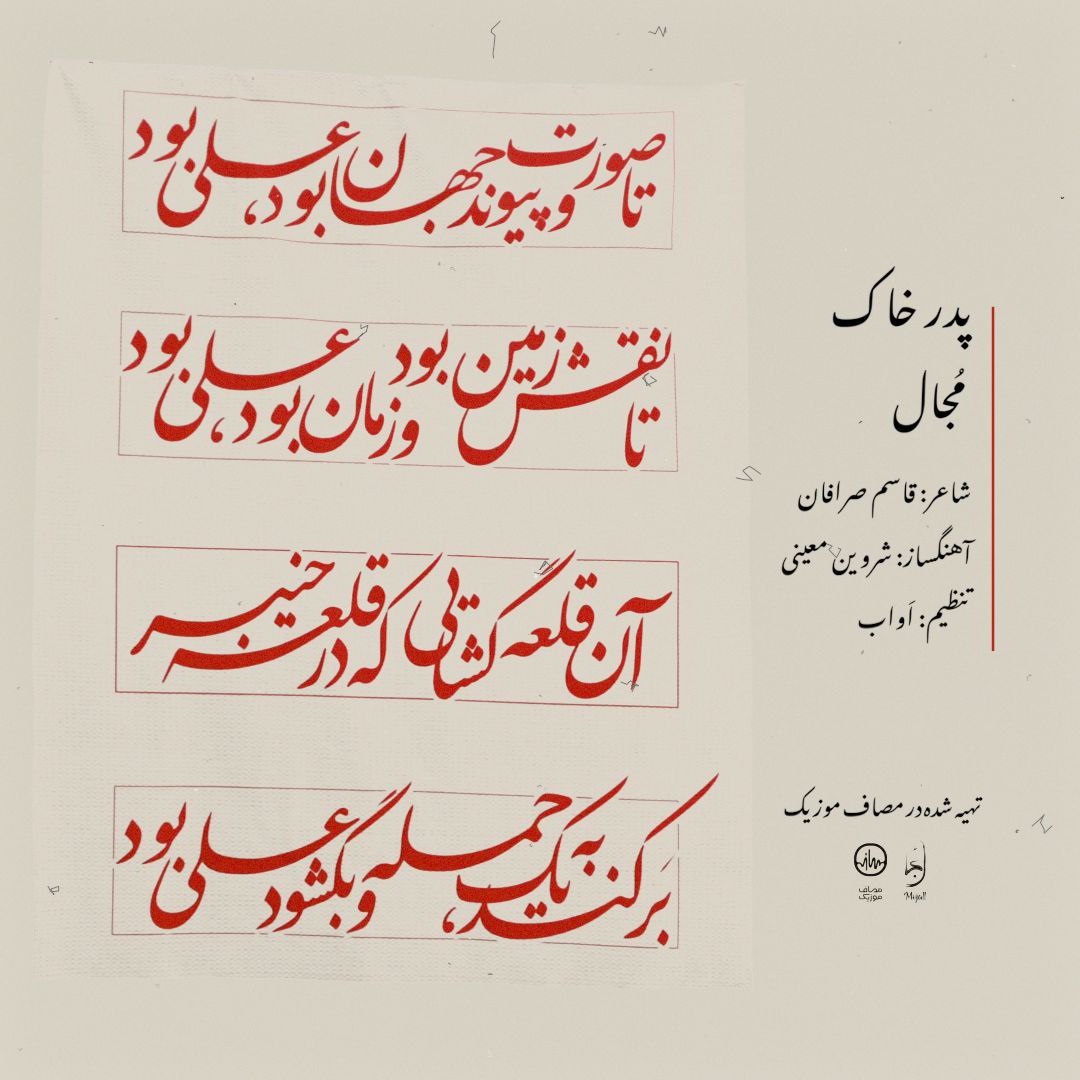 تا صورت و پیوند جهان بود، علی بود
تا نقش زمین بود و زمان بود، علی بود
آن قلعه گشایی که در قلعه خیبر
بَرکند به یک حمله و بگشود علی بود
پدر خاک
مُجال
شاعر: قاسم صرافان
آهنگساز: شروین معینی
تنظیم: اَواب
تهیه شده در مصاف موزیک
مصاف
موزیک
Mojall